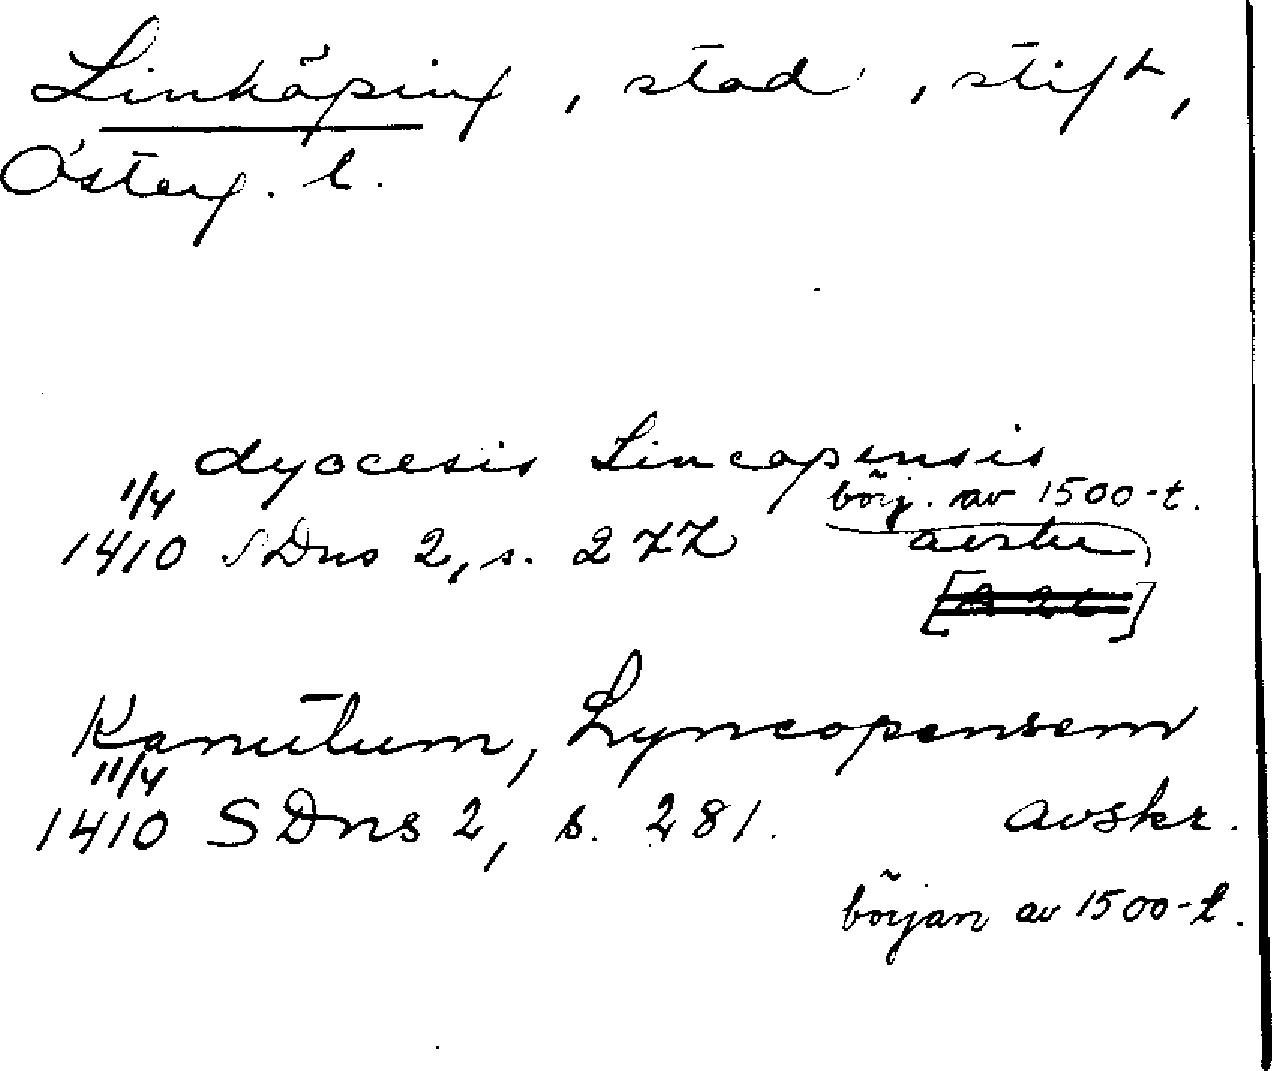 Linköping, stad, stift,
Österg. l.
dyocesis Lincopensis
1/4 börj. av 1500-t.
1410 SDns 2, s. 277 avskr
Kanutum, Lyncopensem
11/4
1410 SDns 2, s. 281. avskr.
början av 1500-t.